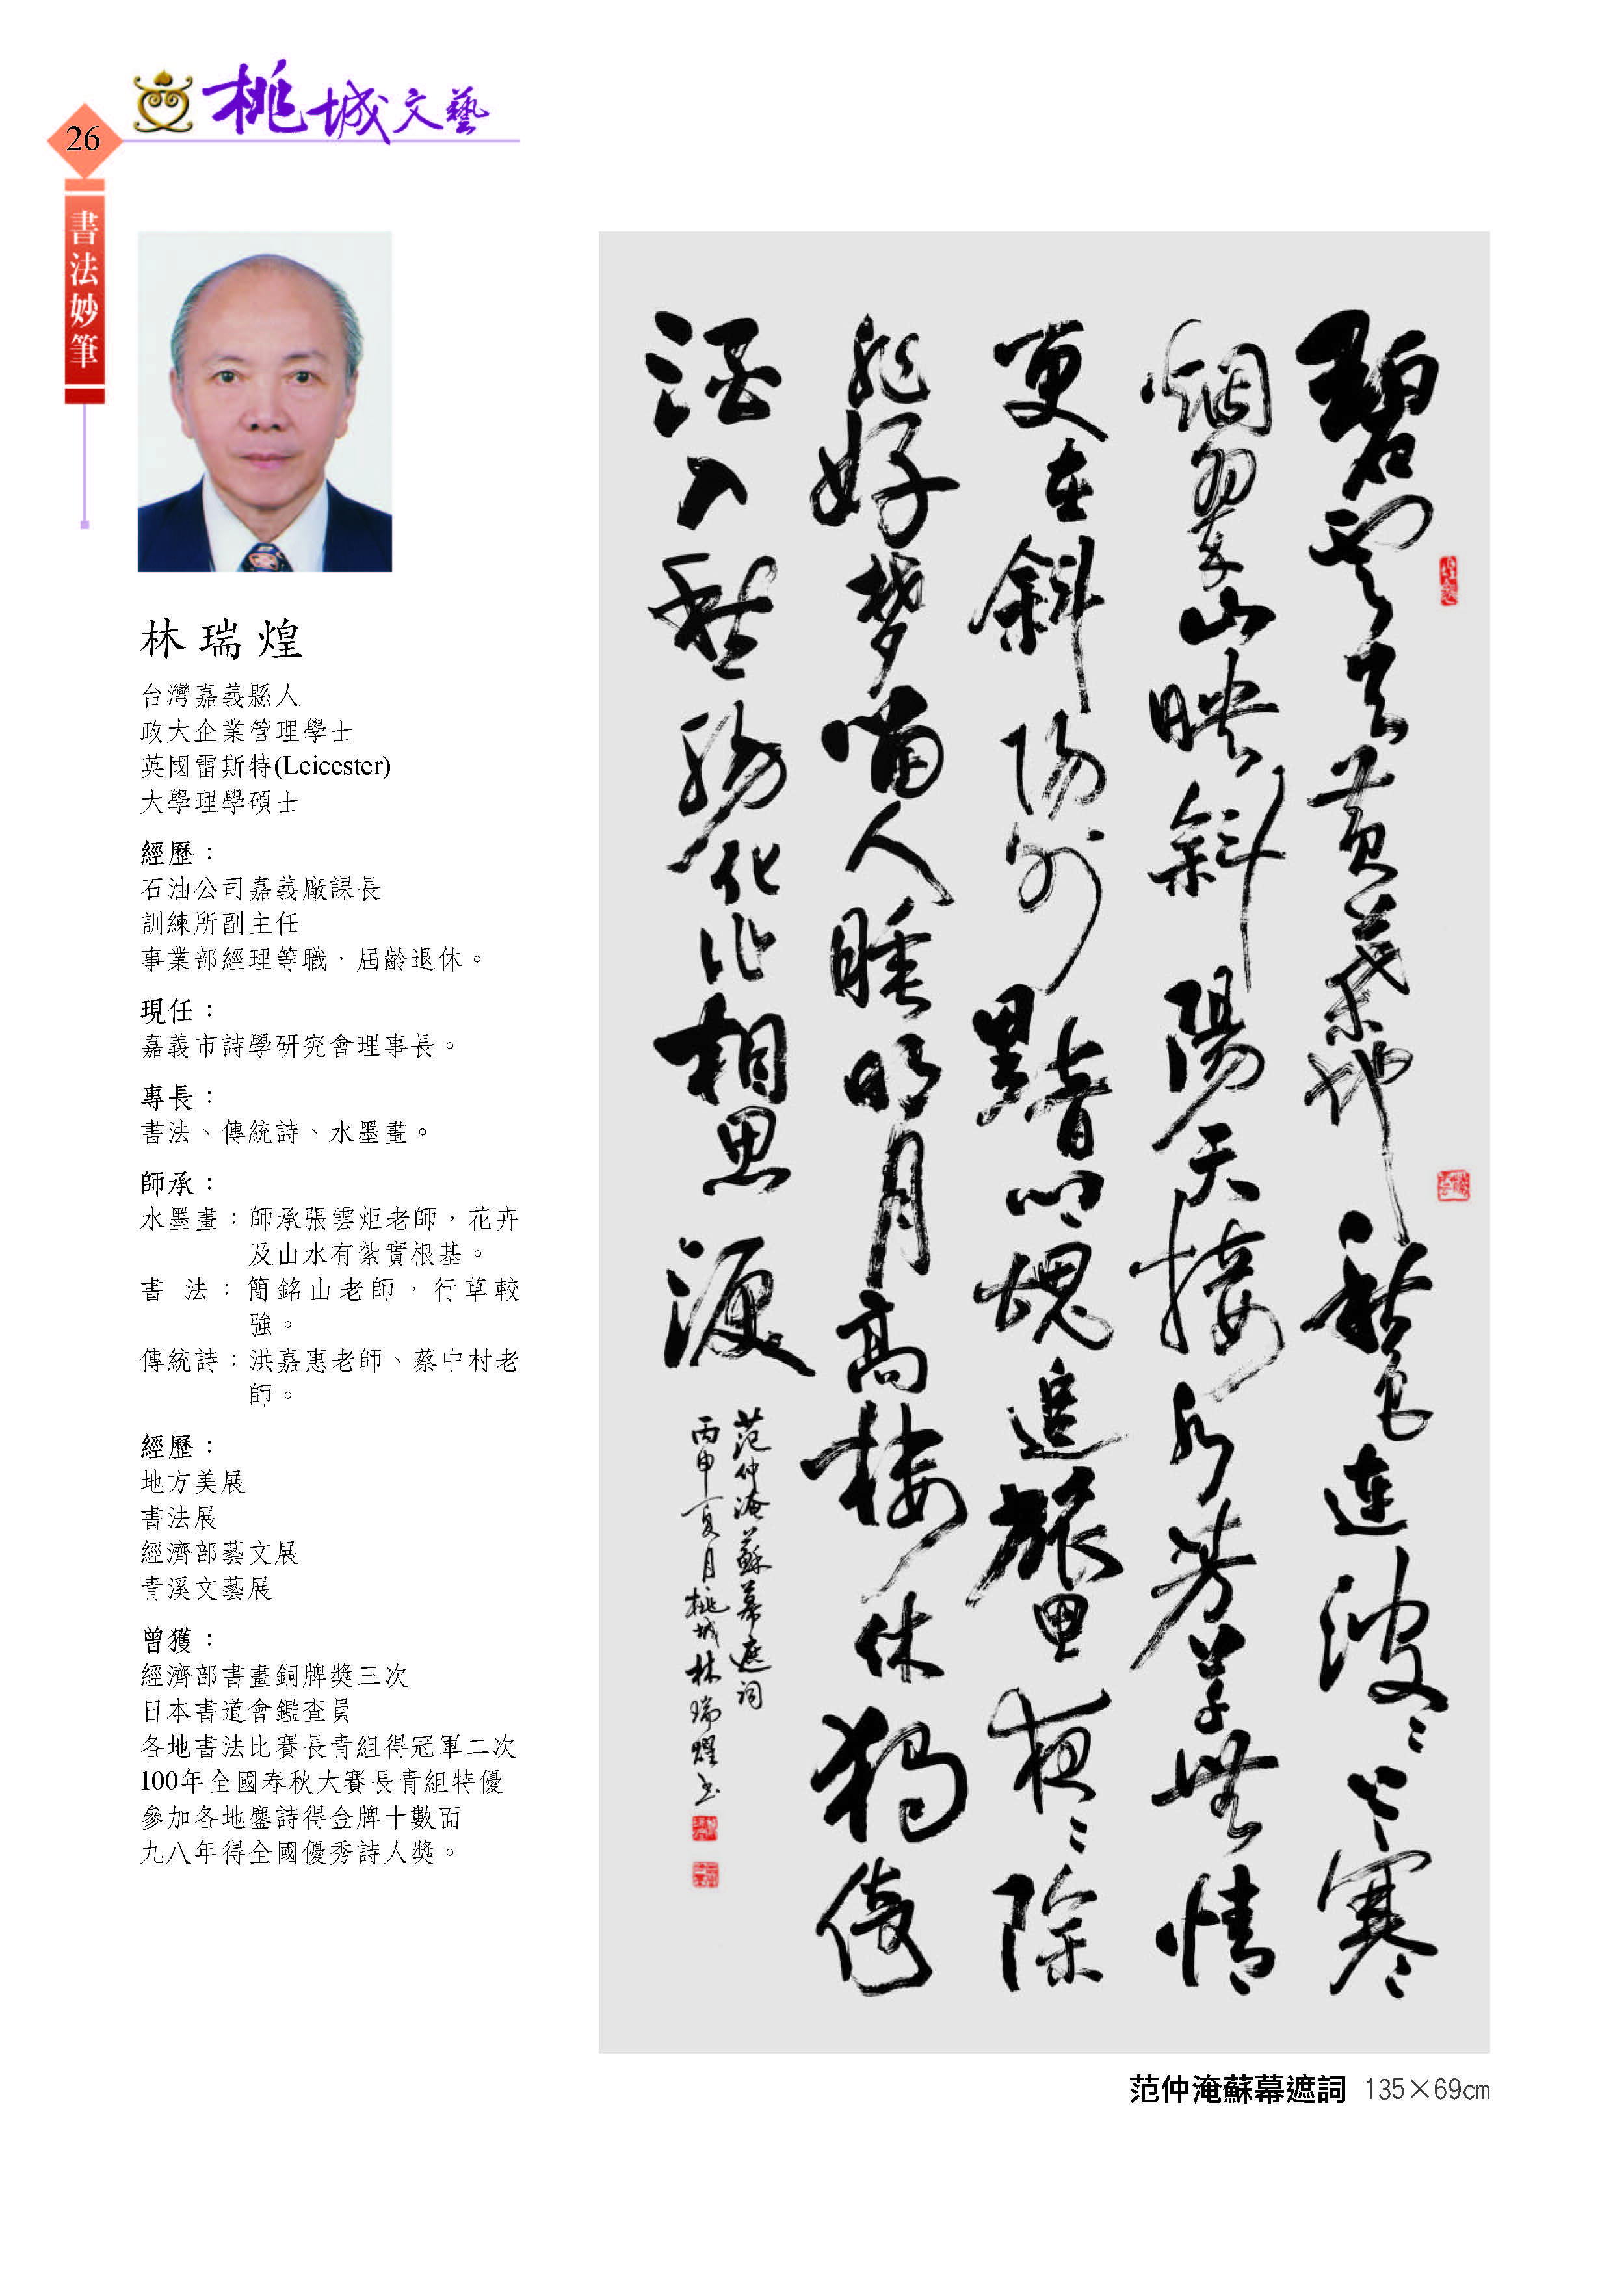 桃城文藝
26
書法妙筆
林瑞煌
台灣嘉義縣人
政大企業管理學士
英國雷斯特(Leicester)
大學理學碩士
經歷：
石油公司嘉義廠課長
訓練所副主任
事業部經理等職，屆齡退休。
現任：
嘉義市詩學研究會理事長。
專長：
書法、傳統詩、水墨畫。
師承：
水墨畫：師承張雲炬老師，花卉
及山水有紮實根基。
書法：簡銘山老師，行草較
強。
傳統詩：洪嘉惠老師、蔡中村老
師。
經歷：
地方美展
書法展
經濟部藝文展
青溪文藝展
曾獲：
經濟部書畫銅牌獎三次
日本書道會鑑查員
各地書法比賽長青組得冠軍二次
100年全國春秋大賽長青組特優
參加各地鏖詩得金牌十數面
九八年得全國優秀詩人獎。
碧雲天黃葉地秋色連波〻上寒
烟翠山映斜陽天接水芳草無情
更在斜陽外黯鄉魂追旅思夜〻除
非好夢留人睡明月高樓休獨倚
酒入愁腸化作相思淚
范仲淹蘇幕遮詞
丙申夏月桃城林瑞煌書
范仲淹蘇幕遮詞 135×69cm